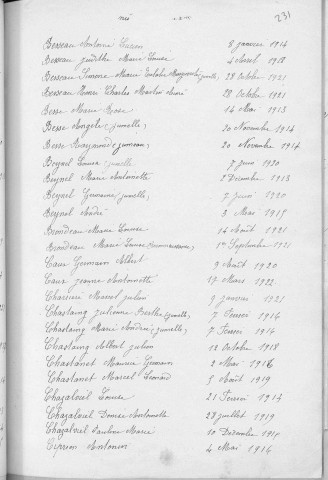 231
Besseau Antoine 8 janvier 1914
Besseau Judithe Marie Louise 4 Avril 1918
Besseau Simone Marie Eulalie Marguerite (jumelle) 28 Octobre 1921
Besseau Henri Charles Martin André 28 Octobre 1921
Besse Marie Rose 14 Mai 1913
Besse Angèle (jumelle) 20 Novembre 1914
Besse Raymond (jumeau) 20 Novembre 1914
Beynel Louise (jumelle) 7 juin 1920
Beynel Marie Antoinette 2 Décembre 1913
Beynel Germaine (jumelle) 7 juin 1920
Beynel André 3 Mai 1915
Brondeau Marie Louise 14 Août 1921
Brondeau Marie Louise 1er Septembre 1921
Caux Germain Albert 9 Août 1920
Caux Jeanne Antoinette 17 Mars 1922
Charrière Marcel Julien 9 janvier 1921
Chastaing Julienne Berthe (jumelle) 7 Février 1914
Chastaing Marie Andrée (jumelle) 7 Février 1914
Chastaing Albert Julien 12 Octobre 1918
Chastanet Maurice Germain 2 Mai 1916
Chastanet Marcel Léonard 5 Août 1919
Chazalviel Louise 21 Février 1914
Chazalviel Denise Antoinette 28 juillet 1919
Chazalviel Pauline Marie 10 Décembre 1915
Ciprem Antonin 4 Mai 1914